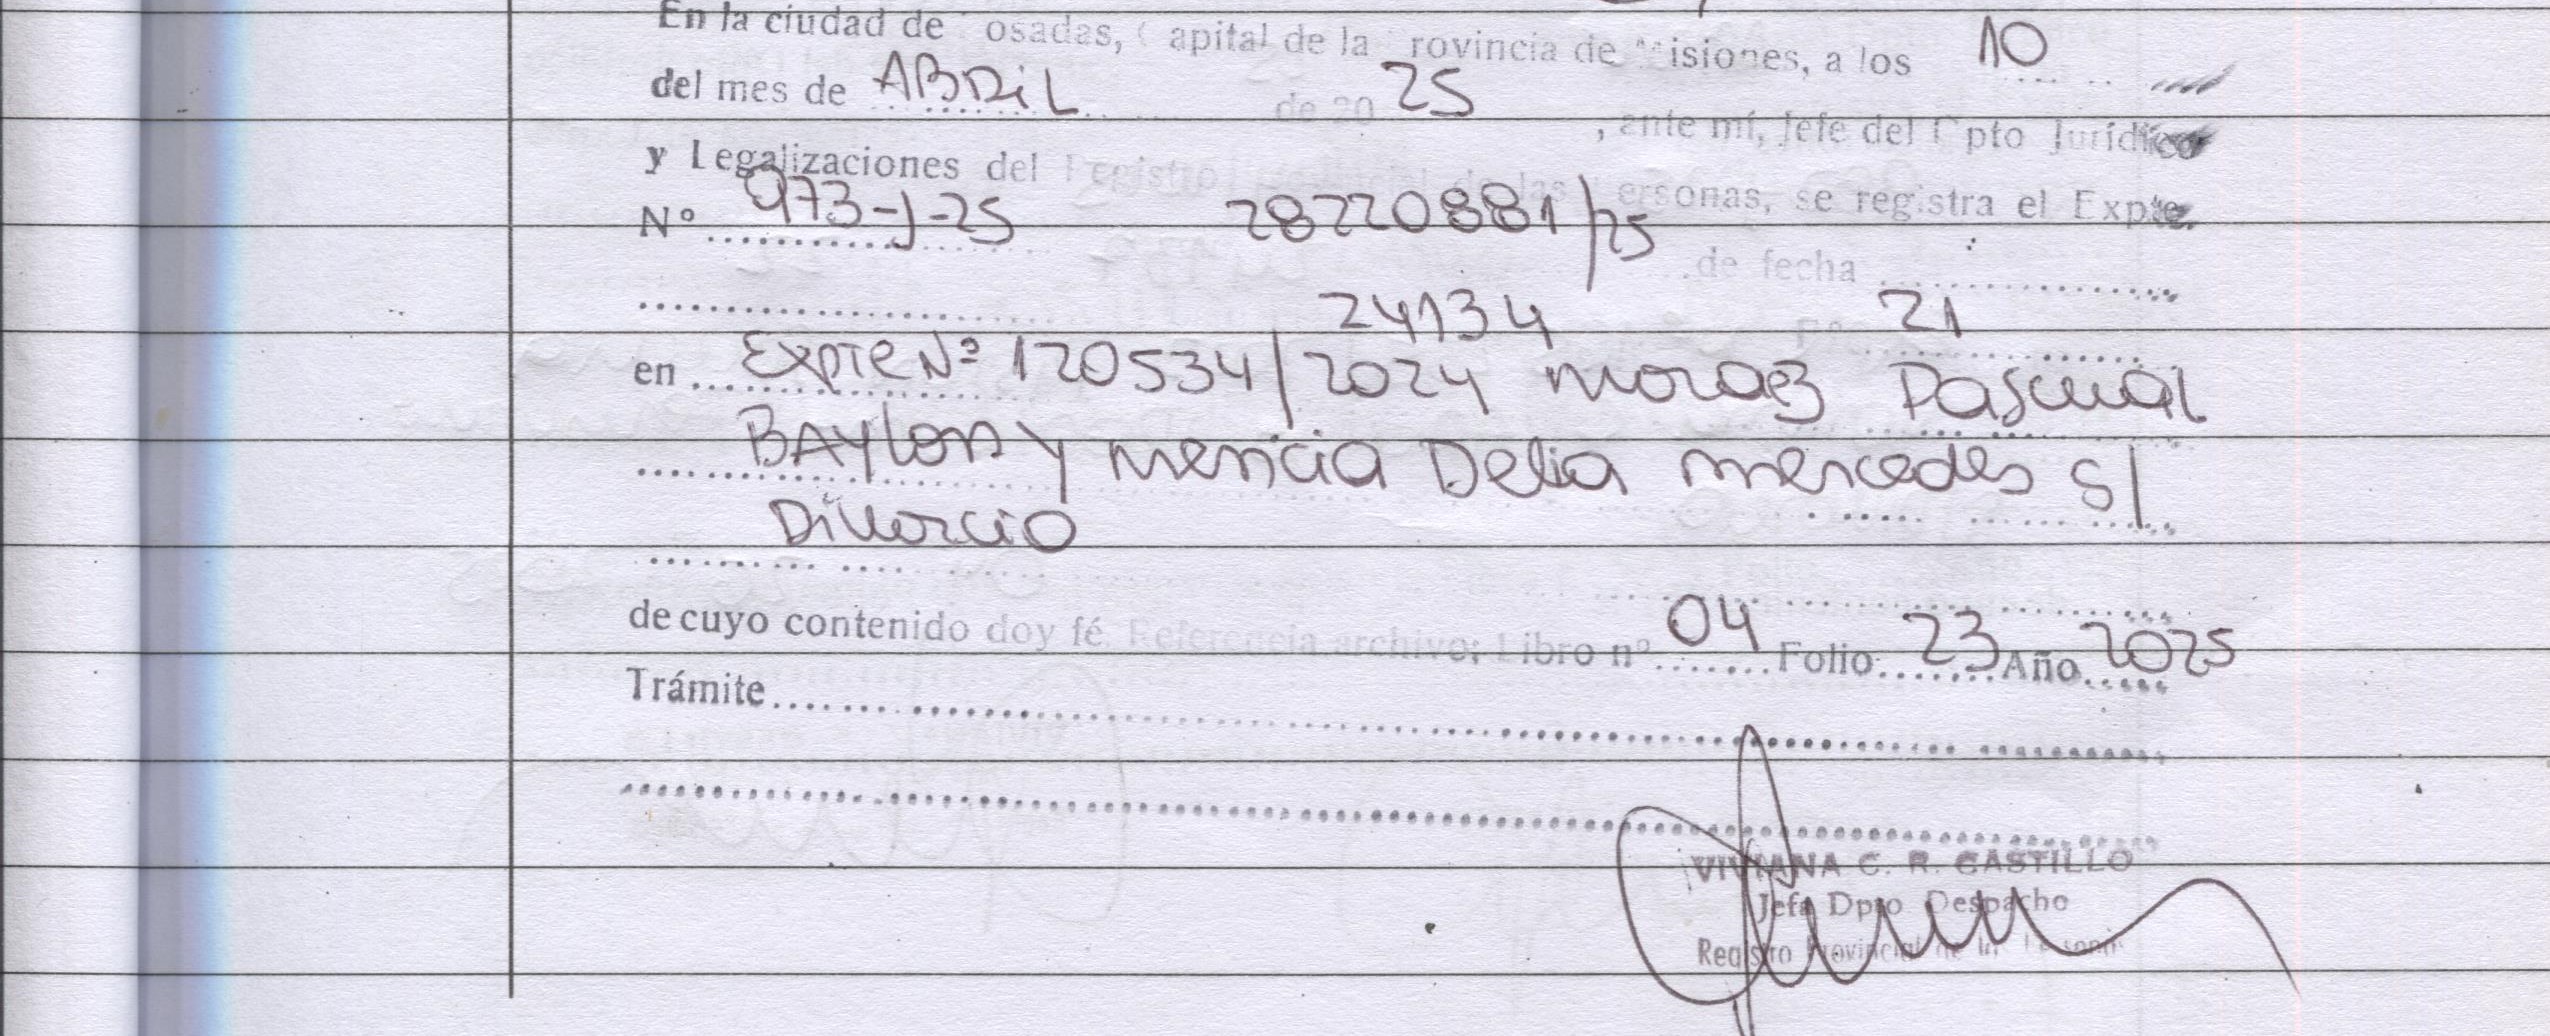 En la ciudad de Posadas, Capital de la Provincia de Misiones, a los 10
del mes de ABRIL de 20 25
, ante mí, Jefe del Dpto Jurídico
y Legalizaciones del Registro Provincial de las Personas, se registra el Expte.
Nº 973-J-25 28220881/25
de fecha
24134 Fº 21
en Expte Nº 120534/2024 Moraez Pascual
BAYLON y Mencia Delia Mercedes S/
Divorcio
de cuyo contenido doy fé. Referencia archivo: Libro nº 04 Folio 23 Año 2025
Trámite
VIVIANA C. R. CASTILLO
Jefa Dpto Despacho
Registro Provincial de las Personas